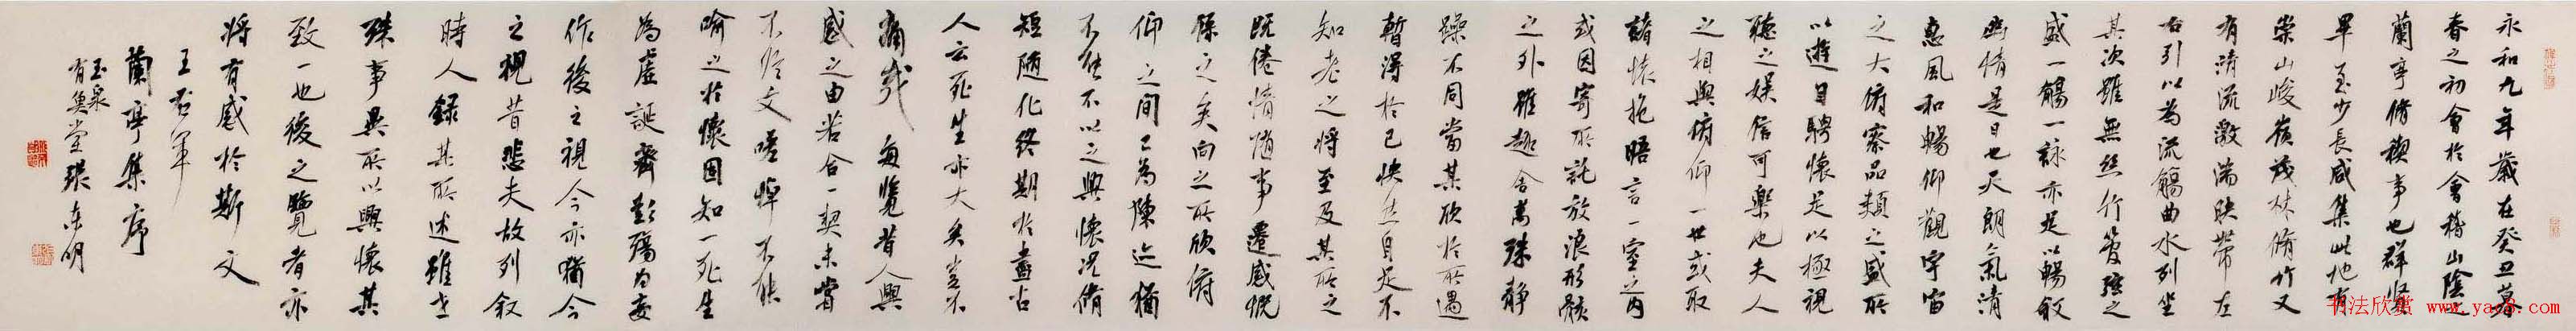 永和九年歲在癸丑暮
春之初會於會稽山陰之
蘭亭脩禊事也群賢
畢至少長咸集此地有
崇山峻嶺茂林脩竹又
有清流激湍映帶左
右引以為流觴曲水列坐
其次雖無絲竹管弦之
盛一觴一詠亦足以暢敘
幽情是日也天朗氣清
惠風和暢仰觀宇宙
之大俯察品類之盛所
以遊目騁懷足以極視
聽之娛信可樂也夫人
之相與俯仰一世或取
諸懷抱晤言一室之內
或因寄所託放浪形骸
之外雖趣舍萬殊靜
躁不同當其欣於所遇
暫得於己快然自足不
知老之將至及其所之
既倦情隨事遷感慨
係之矣向之所欣俯
仰之間已為陳迹猶
不能不以之興懷況脩
短隨化終期於盡古
人云死生亦大矣豈不
痛哉每覽昔人興
感之由若合一契未嘗
不臨文嗟悼不能
喻之於懷固知一死生
為虛誕齊彭殤為妄
作後之視今亦猶今
之視昔悲夫故列敘
時人錄其所述雖世
殊事異所以興懷其
致一也後之覽者亦
將有感於斯文
王右軍
蘭亭集序
玉泉
有魚堂張東明
书法欣赏 www.yac8.com